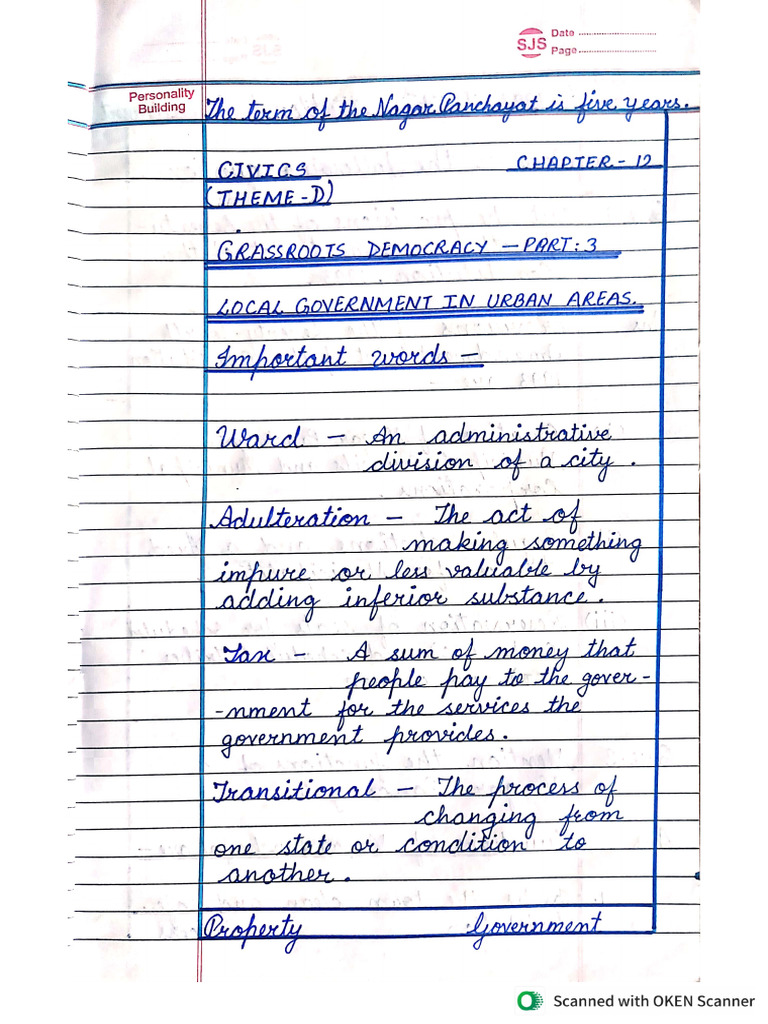 SJS
Date
Page
Personality
Building
The term of the Nagar Panchayat is five years.
CIVICS CHAPTER - 12
(THEME - D)
GRASSROOTS DEMOCRACY - PART : 3
LOCAL GOVERNMENT IN URBAN AREAS.
Important words -
Ward - An administrative
division of a city .
Adulteration - The act of
making something
impure or less valuable by
adding inferior substance .
Tax - A sum of money that
people pay to the gover-
-nment for the services the
government provides .
Transitional - The process of
changing from
one state or condition to
another .
Property Government
Scanned with OKEN Scanner